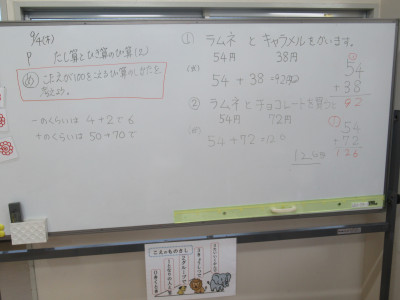 9/4(木)
P たし算とひき算のひっ算(2)
め こたえが100をこえるひっ算のしかたを
考えよう。
一のくらいは 4+2で6
十のくらいは 50+70で
① ラムネ と キャラメルをかいます。
54円 38円
(式)
54 + 38 =92
54
+ 38
92
② ラムネとチョコレートを買って
54円 72円
54+72=126
54
+ 72
126
こえのものさし